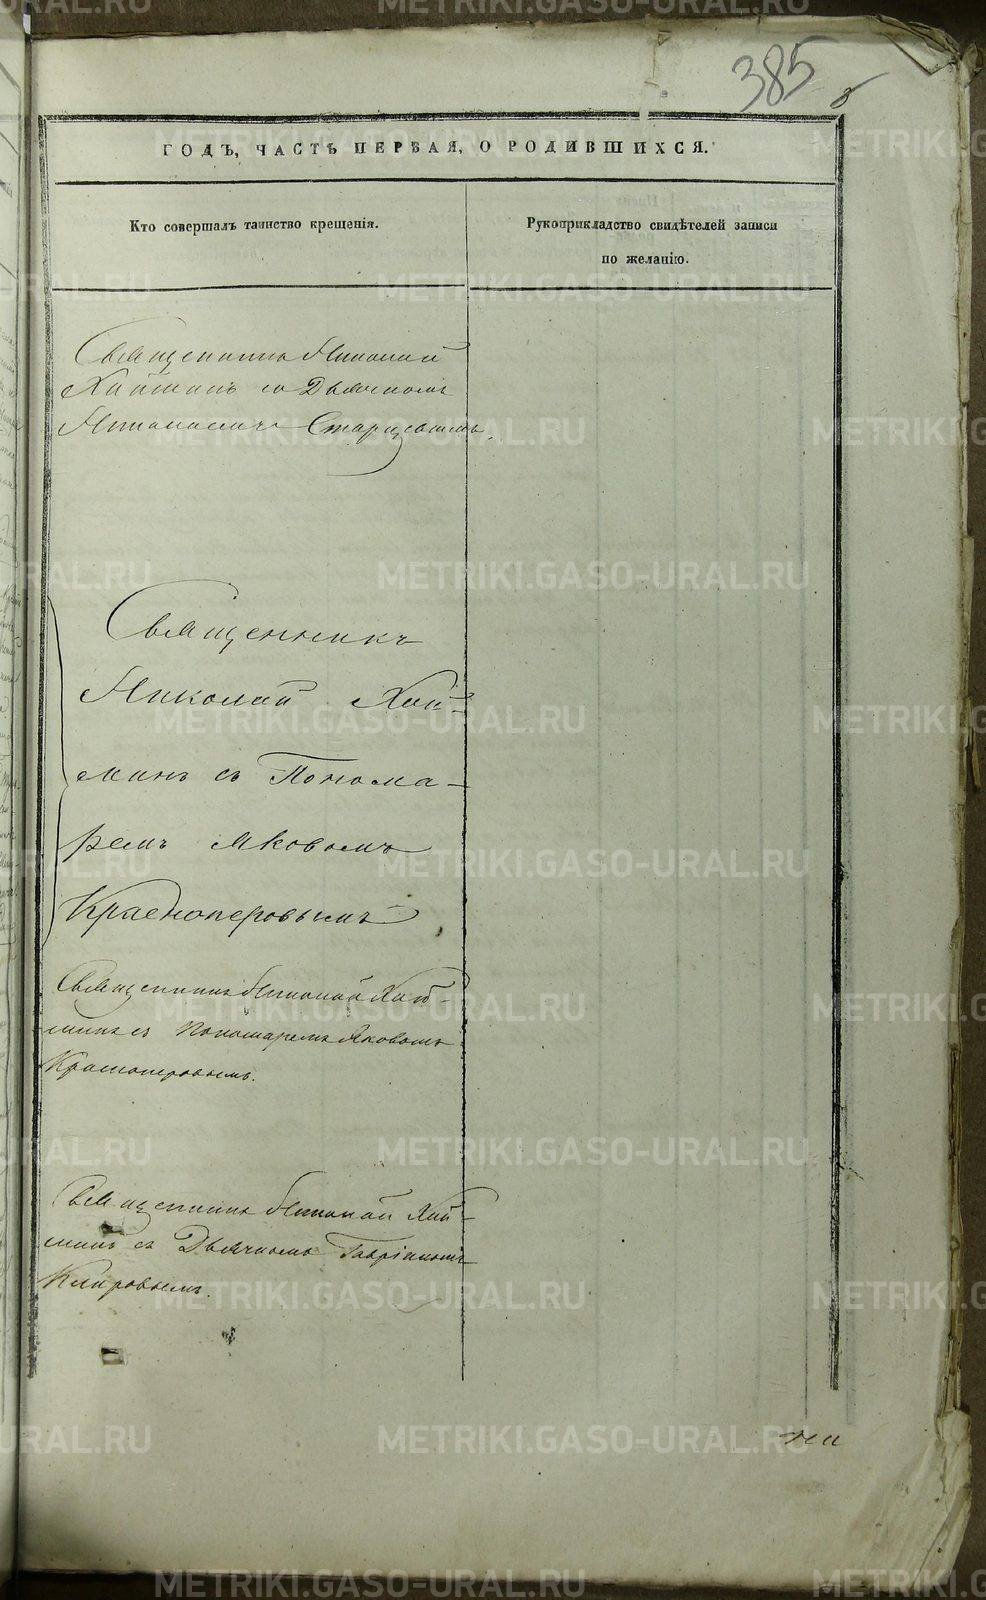 385
8
ГОДЪ, ЧАСТЬ ПЕРВАЯ, О РОДИВШИХСЯ.
Кто совершалъ таинство крещенія.
Рукоприкладство свидѣтелей записи
по желанію.
Священникъ Николай
Хайминъ со Дьячкомъ
Старцевымъ.
Священникъ
Николай Хай-
минъ съ Понома-
ремъ Яковомъ
Красноперовымъ
Священникъ Николай Хай-
минъ съ Пономаремъ Яковомъ
Красноперовымъ.
Священникъ Николай Хай-
минъ съ Дьячкомъ Гавріиломъ
Кляровымъ.
METRIKI.GASO-URAL.RU